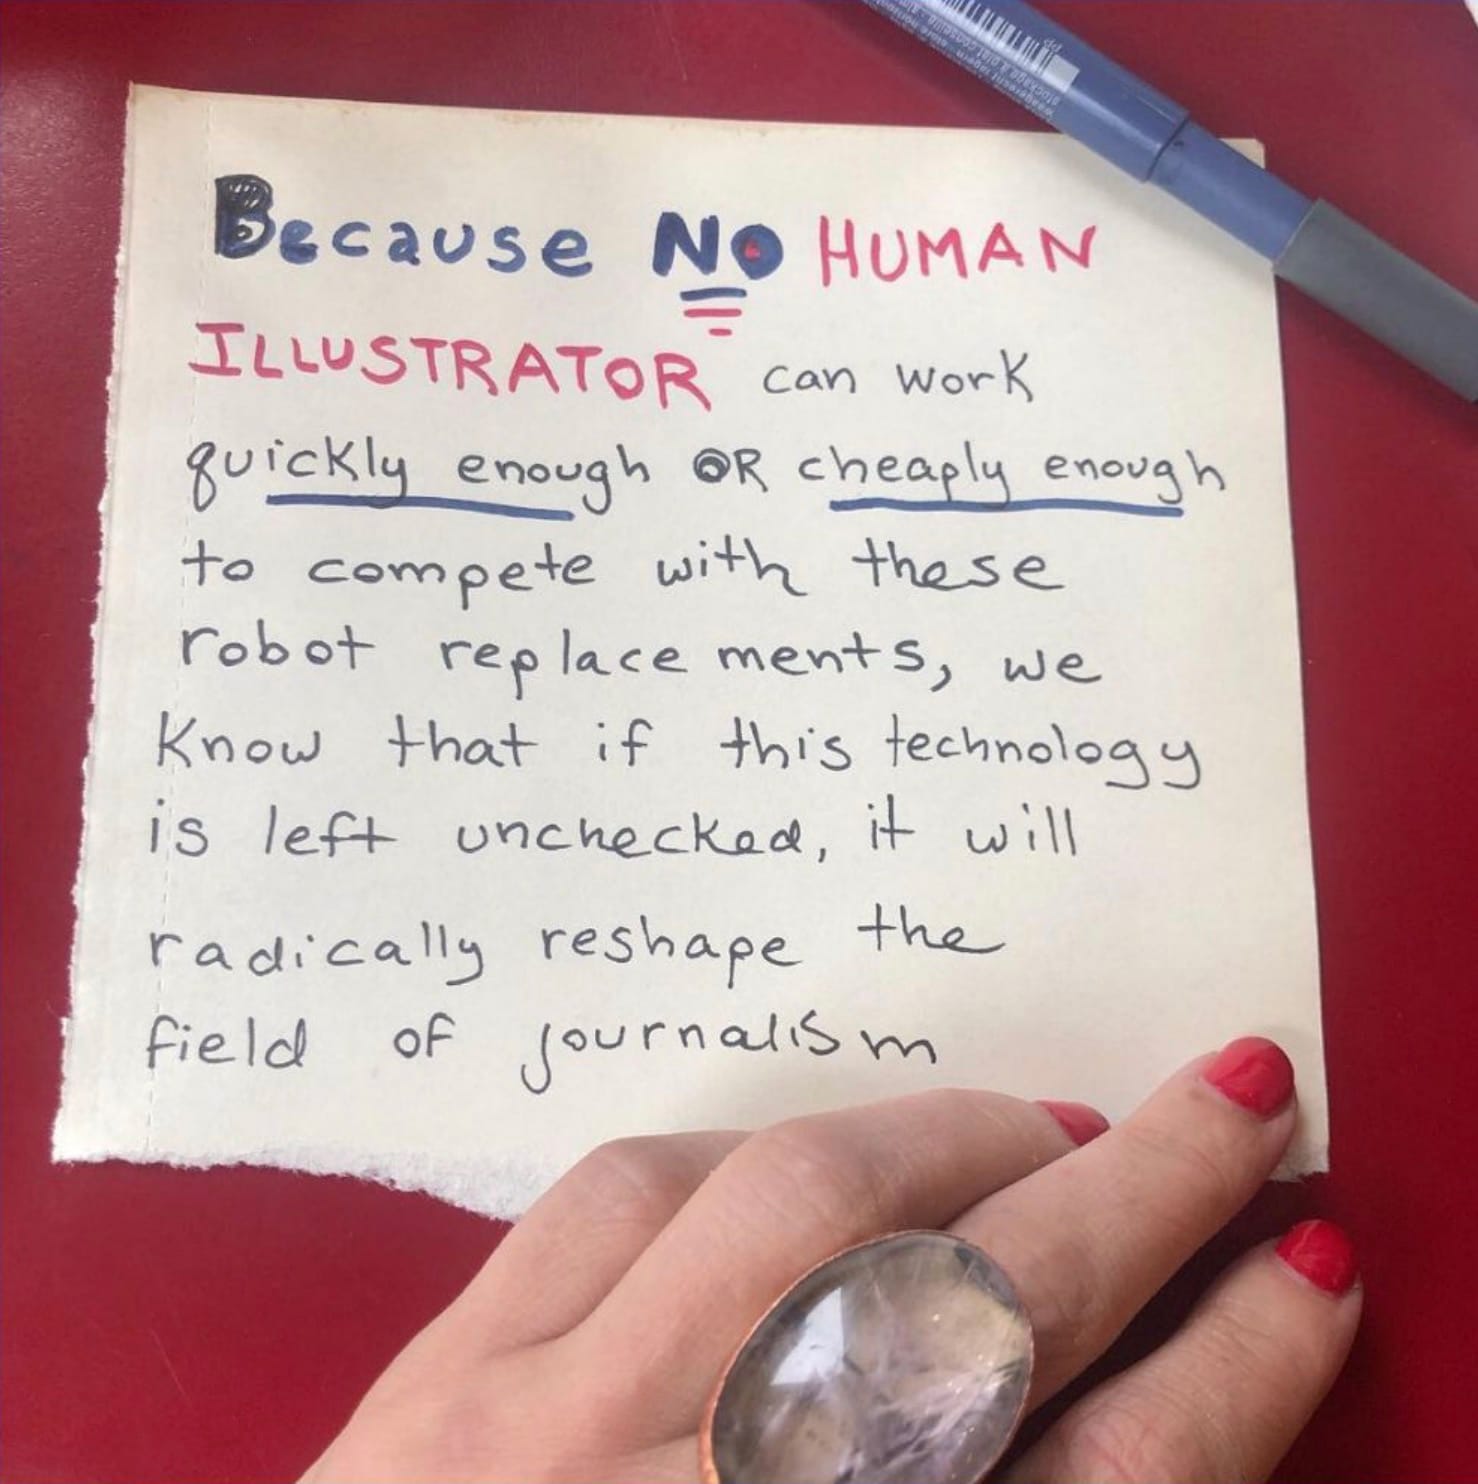 Because NO HUMAN
ILLUSTRATOR can work
quickly enough OR cheaply enough
to compete with these
robot replacements, we
know that if this technology
is left unchecked, it will
radically reshape the
field of journalism